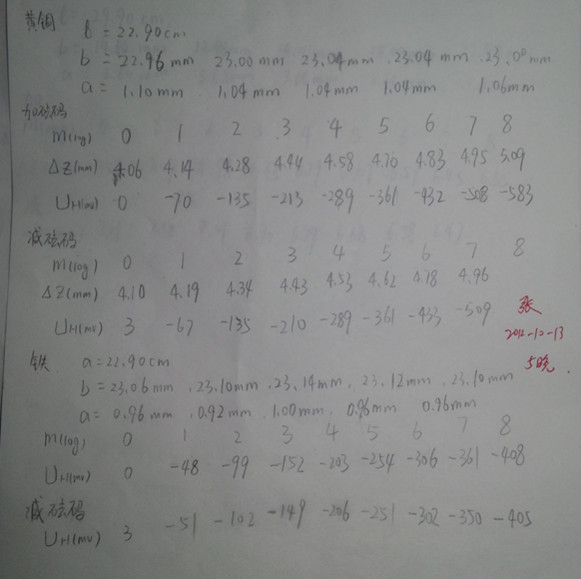 黄铜 l = 22.90cm
b = 22.96mm 23.00mm 23.04mm . 23.04mm . 23.00mm
a = 1.10mm 1.04mm 1.04mm 1.04mm 1.06mm
加砝码
m(10g) 0 1 2 3 4 5 6 7 8
ΔZ(mm) 4.06 4.14 4.28 4.44 4.58 4.70 4.83 4.95 5.09
UH(mv) 0 -70 -135 -213 -289 -361 -432 -508 -583
减砝码
m(10g) 0 1 2 3 4 5 6 7 8
ΔZ(mm) 4.10 4.19 4.34 4.43 4.53 4.62 4.78 4.96
UH(mv) 3 -67 -135 -210 -289 -361 -433 -509
张
2012-12-13
5晚.
铁 a=22.90cm
b=23.06mm , 23.10mm , 23.14mm , 23.12mm , 23.10mm
a= 0.96mm , 0.92mm , 1.00mm , 0.96mm 0.96mm
m(10g) 0 1 2 3 4 5 6 7 8
UH(mv) 0 -48 -99 -152 -203 -254 -306 -361 -408
减砝码
UH(mv) 3 -51 -102 -149 -206 -251 -302 -350 -405